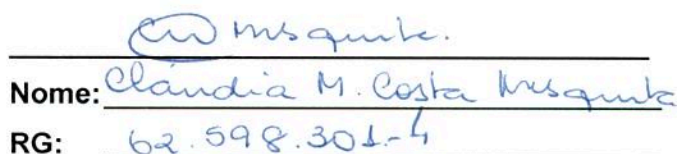 Mesquita.
Nome: Cláudia M. Costa Mesquita
RG: 62.598.301-4